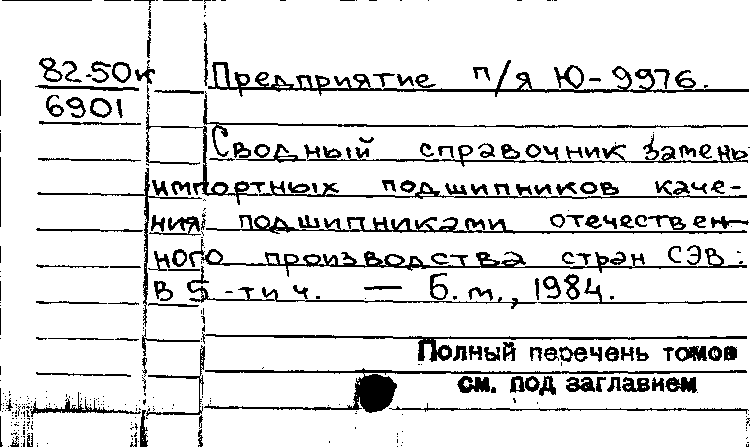 82-50к Предприятие п/я Ю-9976.
6901
Сводный справочник замены
импортных подшипников каче-
ния подшипниками отечествен-
ного производства стран СЭВ:
в 5-ти ч. — Б.м., 1984.
Полный перечень томов
см. под заглавием